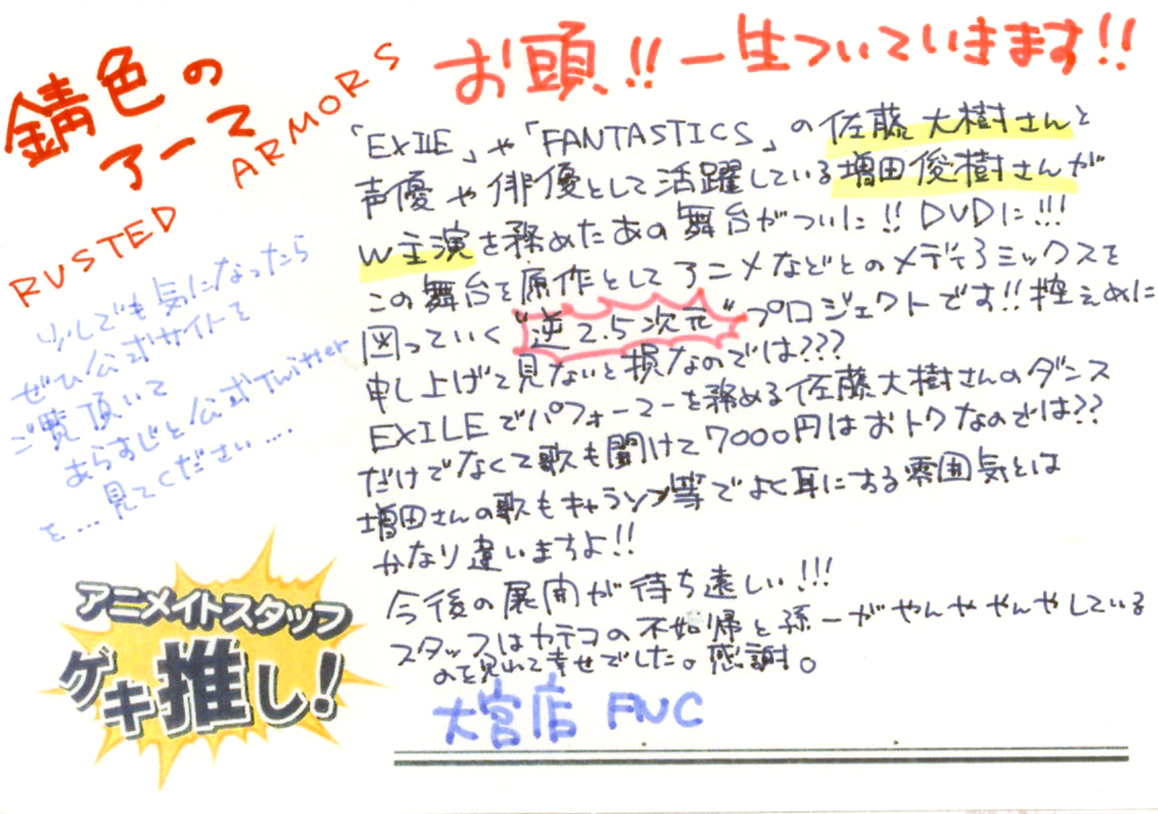 錆色の
アーマ
RUSTED ARMORS
お頭!!一生ついていきます!!
「EXILE」や「FANTASTICS」の佐藤大樹さんと
声優や俳優として活躍している増田俊樹さんが
W主演を務めたあの舞台がついに!!DVDに!!!
この舞台を原作としてアニメなどとのメディアミックスを
図っていく"逆2.5次元"プロジェクトです!!控えめに
申し上げて見ないと損なのでは???
EXILEでパフォーマーを務める佐藤大樹さんのダンス
だけでなくて歌も聞けて7000円はおトクなのでは??
増田さんの歌もキャラソン等でよく耳にする雰囲気とは
かなり違いますよ!!
今後の展開が待ち遠しい!!!
スタッフはカテコの不如帰と孫一がやんややんやしている
のを見れて幸せでした。感謝。
大宮店 FNC
少しでも気になったら
ぜひ公式サイトを
ご覧頂いて
あらすじと公式Twitter
を…見てください….
アニメイトスタッフ
ゲキ推し!